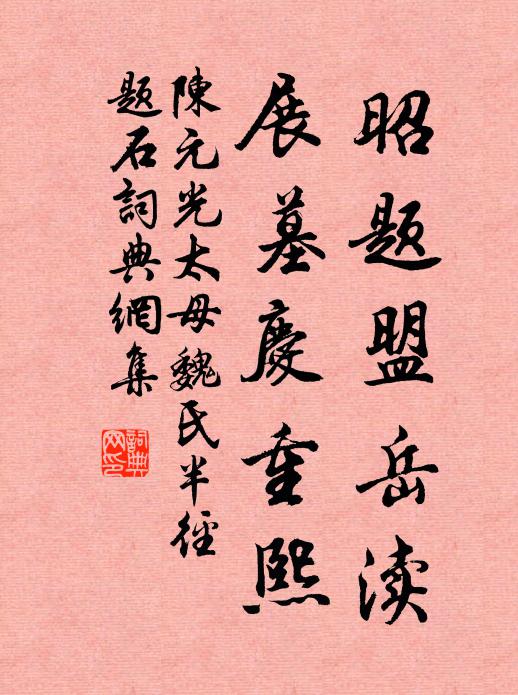 昭题盟岳渎
展墓慶重熙
陳元光太母魏氏半徑
题石詞典網集
詞典網印